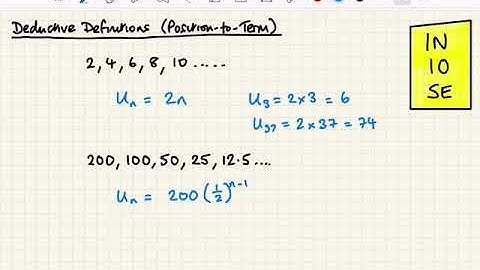 Deductive Definitions (Position-to-Term)
2, 4, 6, 8, 10 .....
Uₙ = 2n
U₃ = 2×3 = 6
U₃₇ = 2 × 37 = 74
200, 100, 50, 25, 12.5 ....
Uₙ = 200 (1/2)ⁿ⁻¹
IN
10
SE